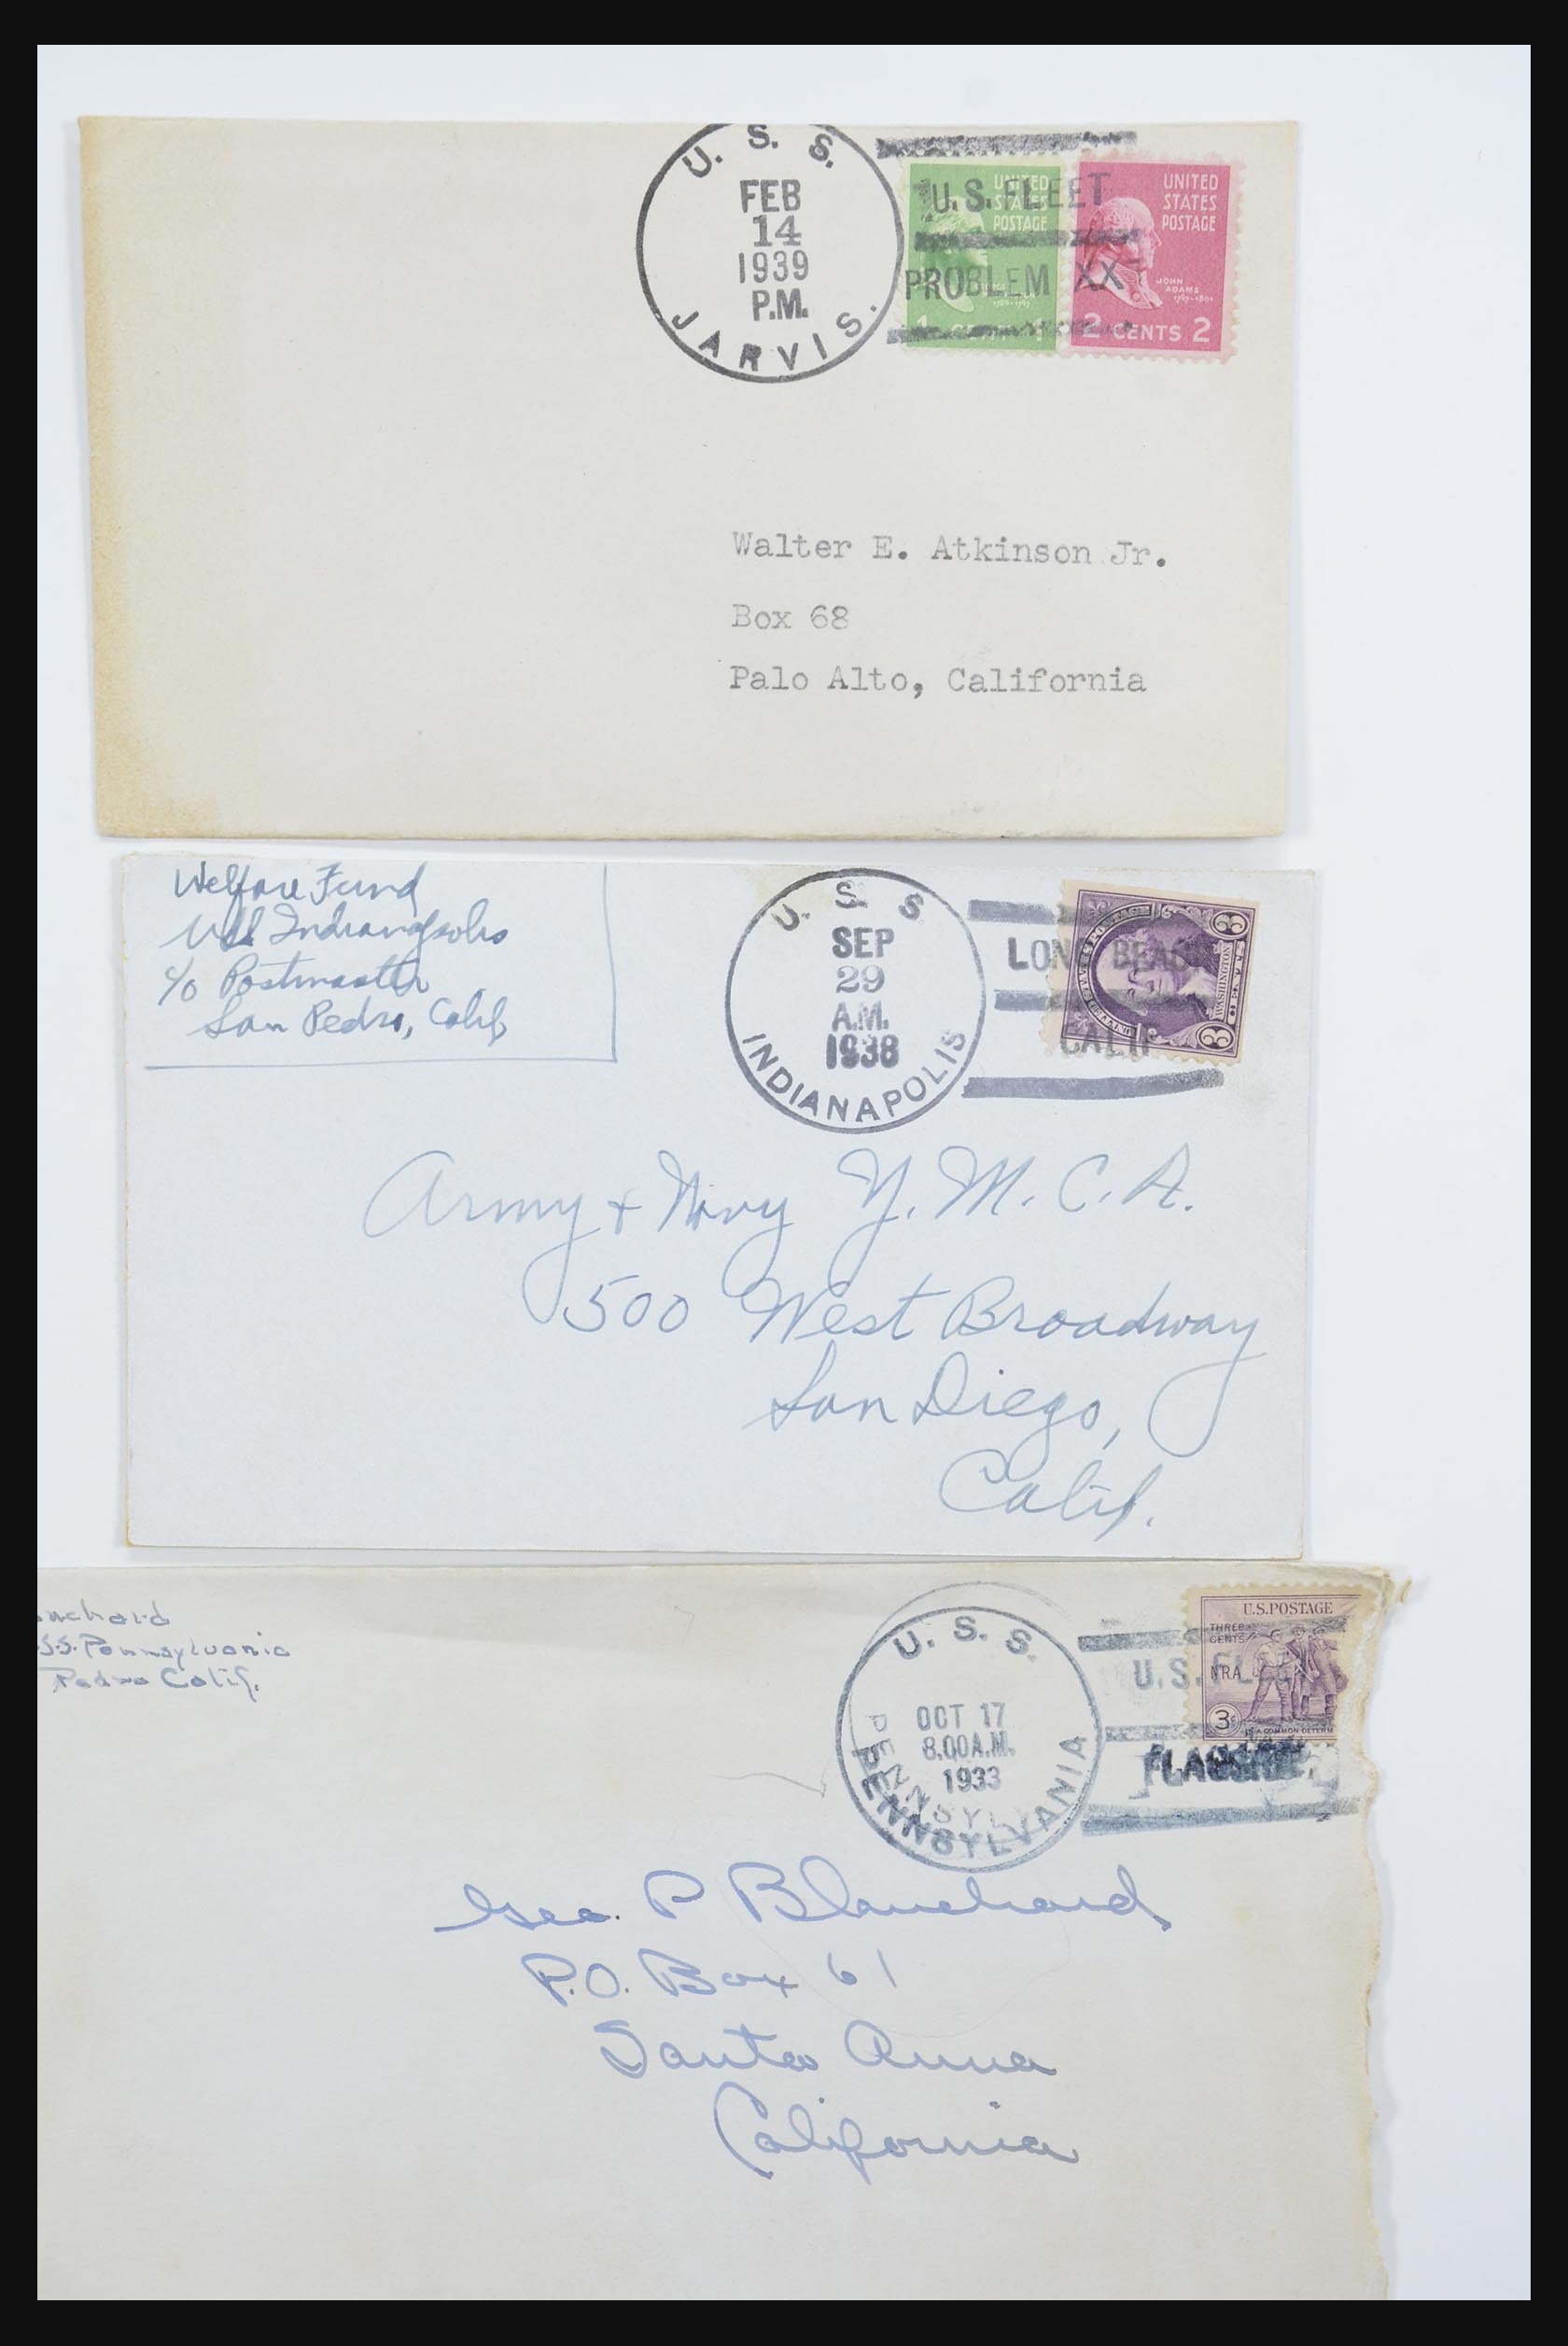 U. S. S.
FEB
14
1939
P.M.
JARVIS.
U.S. FLEET
PROBLEM XX
UNITED
STATES
POSTAGE
1 CENT 1
UNITED
STATES
POSTAGE
JOHN
ADAMS
1797-1801
2 CENTS 2
Walter E. Atkinson Jr.
Box 68
Palo Alto, California
Welfare Fund
USS Indianapolis
c/o Postmaster
San Pedro, Calif
U. S. S
SEP
29
A.M.
1938
INDIANAPOLIS
LONG BEACH
CALIF
3
WASHINGTON
3
Army + Navy Y.M.C.A.
500 West Broadway
San Diego,
Calif.
nchard
S.S. Pennsylvania
Pedro Calif.
U. S. S.
OCT 17
8.00A.M.
1933
PENNSYLVANIA
U.S. FLEET
FLAGSHIP
U.S. POSTAGE
THREE
CENTS
NRA
3c
IN A COMMON DETERM
Geo. P Blanchard
P.O. Box 61
Santa Anna
California